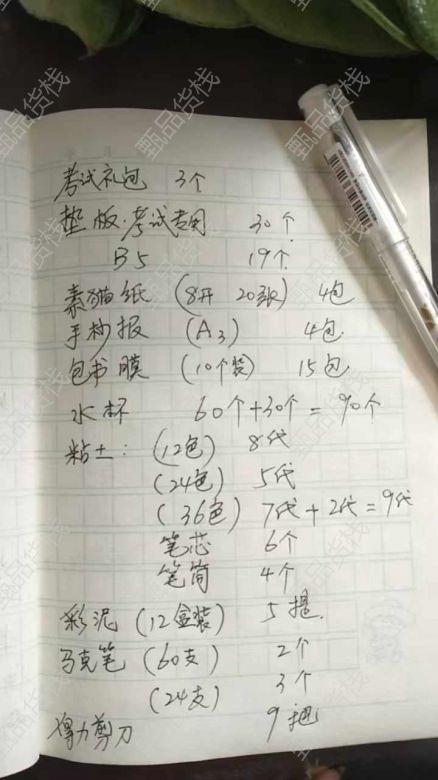 考试礼包 3个
垫版·考试专用 30个
B5 19个
素猫纸 (8开 20张) 4包
手抄报 (A3) 4包
包书膜 (10个装) 15包
水杯 60个+30个=90个
粘土: (12色) 8代
(24色) 5代
(36色) 7代+2代=9代
笔芯 6个
笔筒 4个
彩泥 (12盒装) 5提
马克笔 (60支) 2个
(24支) 3个
得力剪刀 9把
甄品货栈